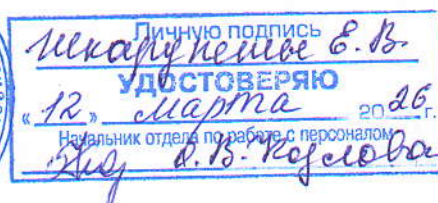 Личную подпись
Шкарупетьке Е. В.
УДОСТОВЕРЯЮ
« 12 » марта 20 26 г.
Начальник отдела по работе с персоналом
О. В. Козлова